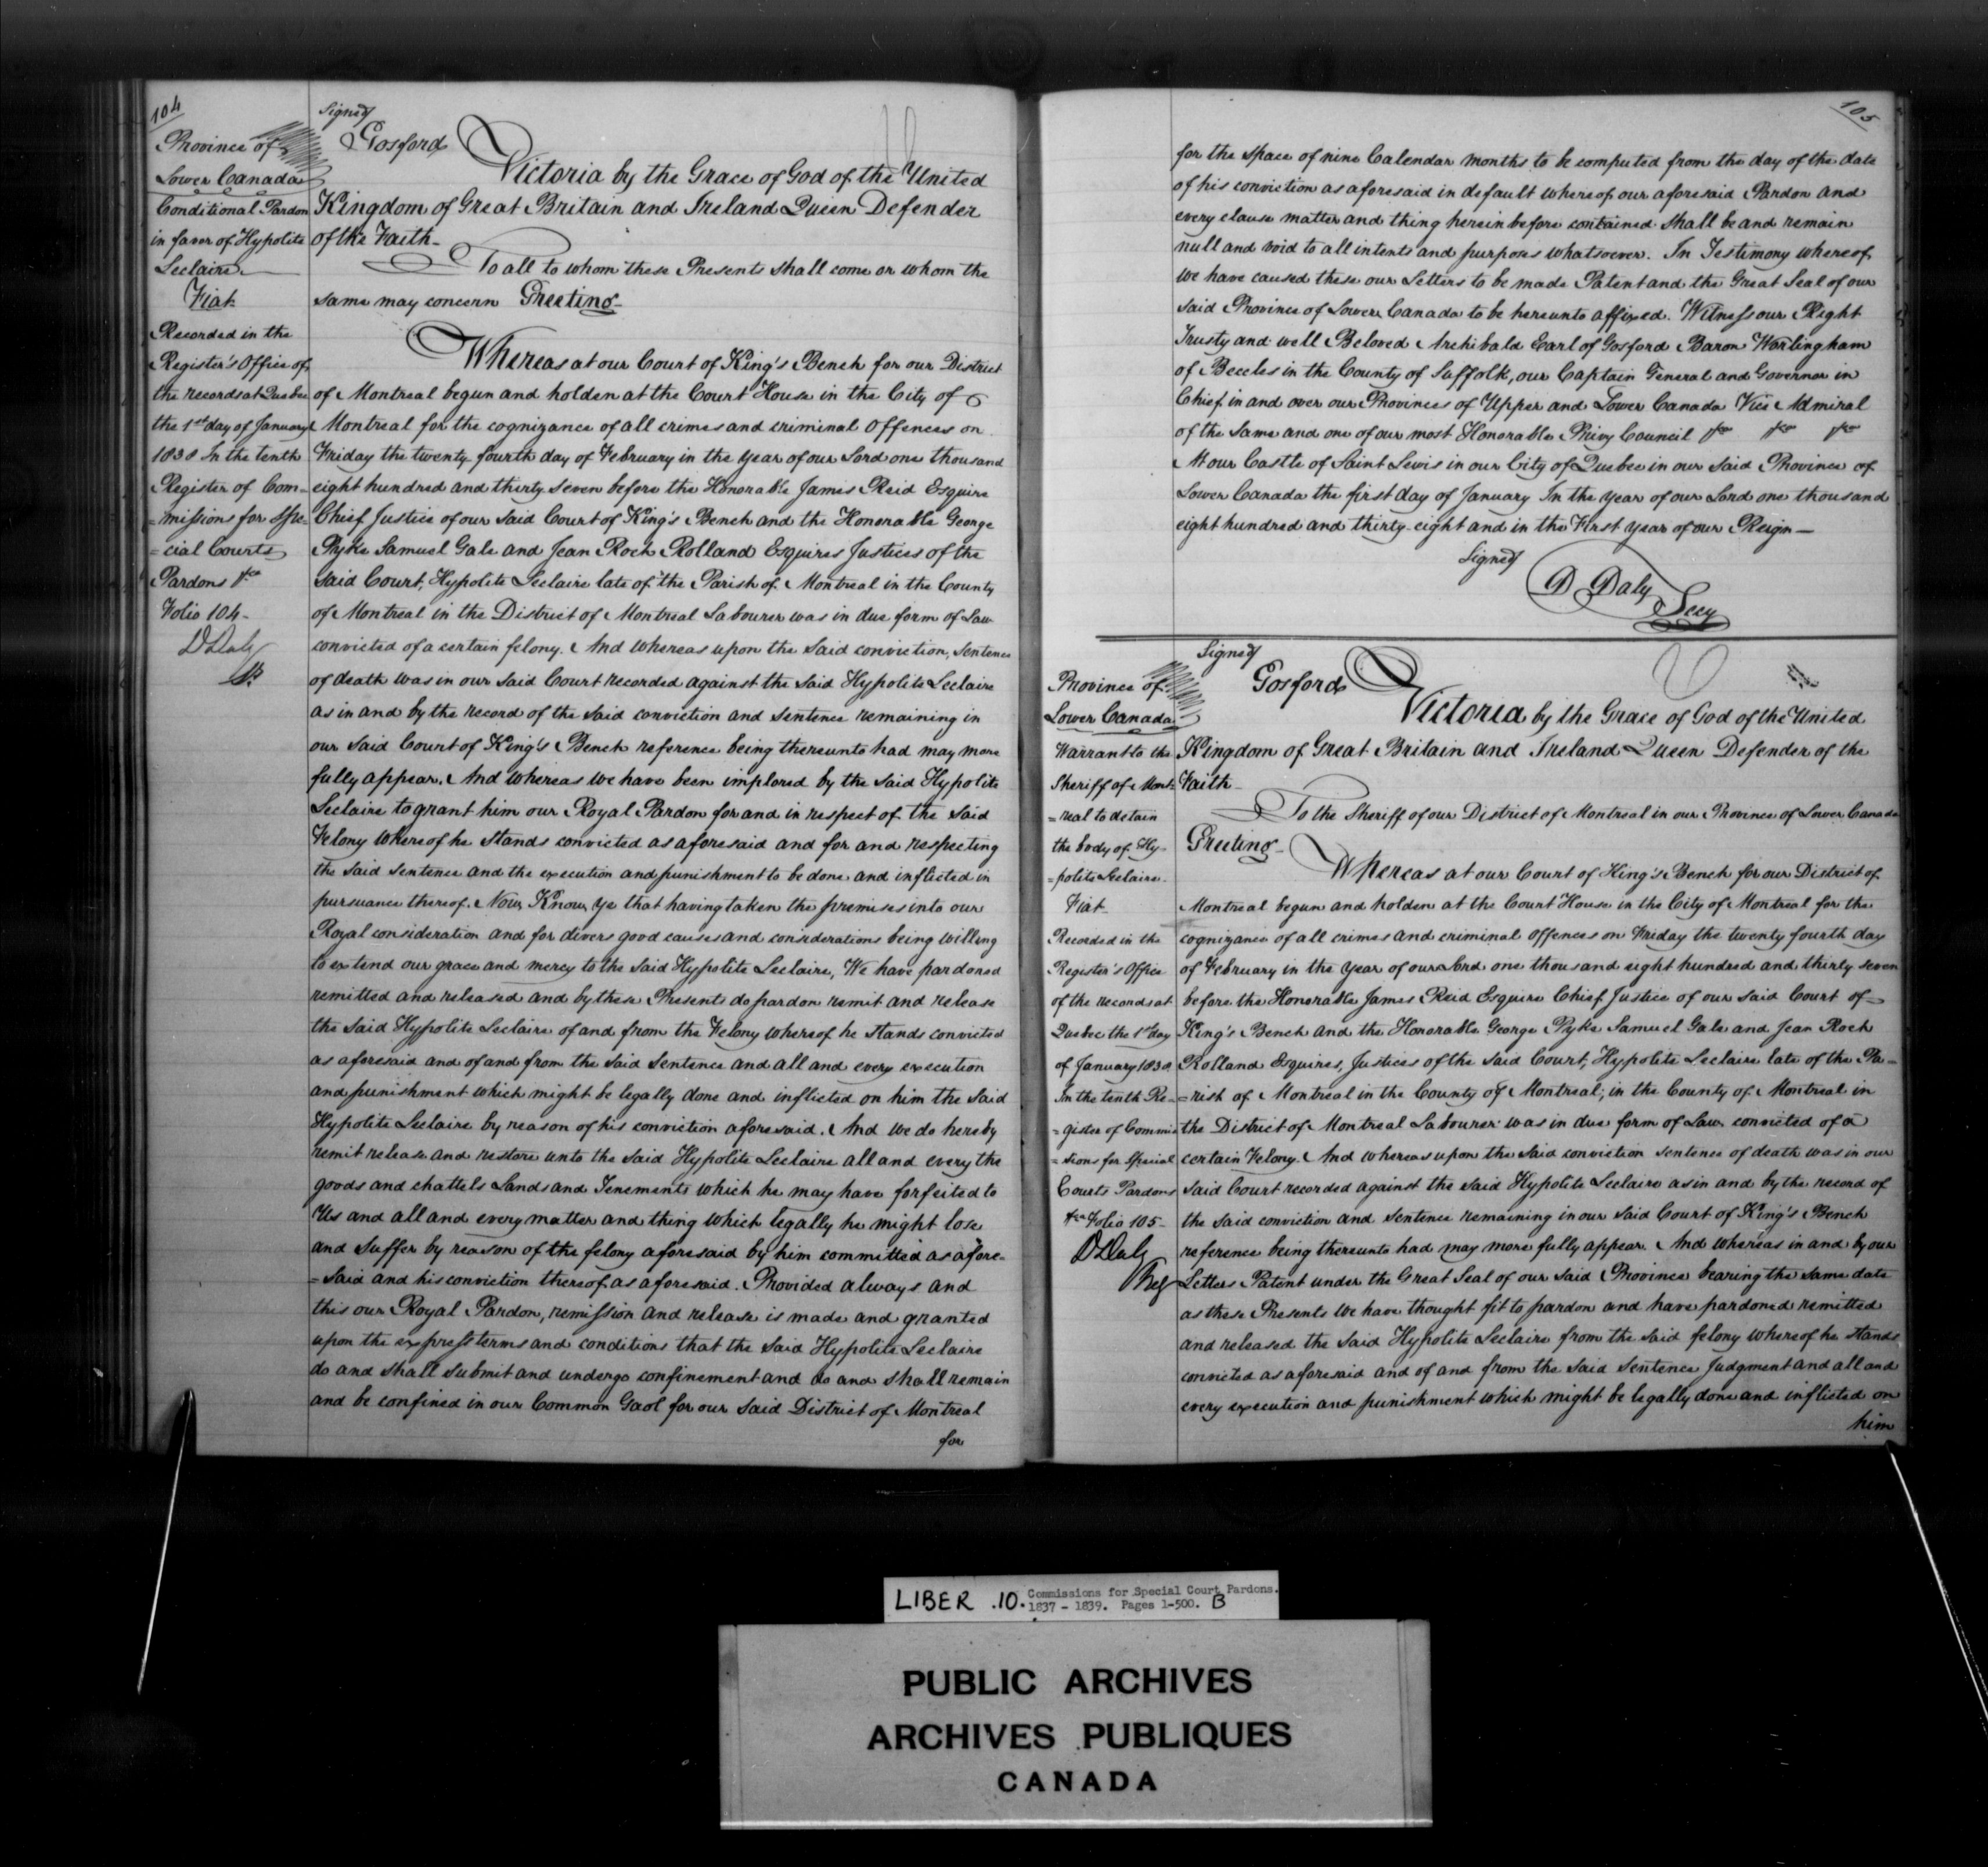 104
Province of
Lower Canada
Conditional Pardon
in favor of Hypolite
Leclaire
Fiat
Recorded in the
Register's Office of
the records at Quebec
the 1st day of January
1838 In the tenth
Register of Com=
=missions for Spe=
=cial Courts
Pardons &ca
Folio 104-
D Daly
Signed
Gosford
Victoria by the Grace of God of the United
Kingdom of Great Britain and Ireland Queen Defender
of the Faith-
To all to whom these Presents shall come or whom the
same may concern Greeting-
Whereas at our Court of King's Bench for our District
of Montreal begun and holden at the Court House in the City of
Montreal for the cognizance of all crimes and criminal Offences on
Friday the twenty fourth day of February in the year of our Lord one thousand
eight hundred and thirty seven before the Honorable James Reid Esquire
Chief Justice of our said Court of King's Bench and the Honorable George
Pyke Samuel Gale and Jean Roch Rolland Esquires Justices of the
said Court, Hypolite Leclaire late of the Parish of Montreal in the County
of Montreal in the District of Montreal Labourer was in due form of Law
convicted of a certain felony. And whereas upon the said conviction, sentence
of death was in our said Court recorded against the said Hypolite Leclaire
as in and by the record of the said conviction and sentence remaining in
our said Court of King's Bench reference being thereunto had may more
fully appear. And whereas we have been implored by the said Hypolite
Leclaire to grant him our Royal Pardon for and in respect of the said
Felony whereof he stands convicted as aforesaid and for and respecting
the said sentence and the execution and punishment to be done and inflicted in
pursuance thereof. Now Know Ye that having taken the premises into our
Royal consideration and for divers good causes and considerations being willing
to extend our grace and mercy to the said Hypolite Leclaire, We have pardoned
remitted and released and by these Presents do pardon remit and release
the said Hypolite Leclaire of and from the Felony whereof he stands convicted
as aforesaid and of and from the said Sentence and all and every execution
and punishment which might be legally done and inflicted on him the said
Hypolite Leclaire by reason of his conviction aforesaid. And we do hereby
remit release and restore unto the said Hypolite Leclaire all and every the
goods and chattels Lands and Tenements which he may have forfeited to
Us and all and every matter and thing which legally he might lose
and suffer by reason of the felony aforesaid by him committed as afore=
=said and his conviction thereof as aforesaid. Provided always and
this our Royal Pardon, remission and release is made and granted
upon the express terms and conditions that the said Hypolite Leclaire
do and shall submit and undergo confinement and do and shall remain
and be confined in our Common Gaol for our said District of Montreal
for
105
for the space of nine Calendar months to be computed from the day of the date
of his conviction as aforesaid in default whereof our aforesaid Pardon and
every clause matter and thing herein before contained shall be and remain
null and void to all intents and purposes whatsoever. In Testimony whereof
We have caused these our Letters to be made Patent and the Great Seal of our
said Province of Lower Canada to be hereunto affixed. Witness our Right
Trusty and well Beloved Archibald Earl of Gosford Baron Worlingham
of Beccles in the County of Suffolk, our Captain General and Governor in
Chief in and over our Provinces of Upper and Lower Canada Vice Admiral
of the same and one of our most Honorable Privy Council &ca &ca &ca
At our Castle of Saint Lewis in our City of Quebec in our said Province of
Lower Canada the first day of January In the year of our Lord one thousand
eight hundred and thirty-eight and in the First year of our Reign-
Signed
D Daly
Secy
Province of
Lower Canada
Warrant to the
Sheriff of Mont
=real to detain
the body of Hy-
=polite Leclaire
Fiat
Recorded in the
Register's Office
of the records at
Quebec the 1st day
of January 1838
In the tenth Re=
=gister of Commis
=sions for Special
Courts Pardons
&ca Folio 105-
D Daly
Reg
Signed
Gosford
Victoria by the Grace of God of the United
Kingdom of Great Britain and Ireland Queen Defender of the
Faith-
To the Sheriff of our District of Montreal in our Province of Lower Canada
Greeting-
Whereas at our Court of King's Bench for our District of
Montreal begun and holden at the Court House in the City of Montreal for the
cognizance of all crimes and criminal offences on Friday the twenty fourth day
of February in the year of our Lord one thousand eight hundred and thirty seven
before the Honorable James Reid Esquire Chief Justice of our said Court of
King's Bench and the Honorable George Pyke Samuel Gale and Jean Roch
Rolland Esquires, Justices of the said Court, Hypolite Leclaire late of the Pa=
=rish of Montreal in the County of Montreal, in the County of Montreal in
the District of Montreal Labourer was in due form of Law convicted of a
certain Felony. And whereas upon the said conviction sentence of death was in our
said Court recorded against the said Hypolite Leclaire as in and by the record of
the said conviction and sentence remaining in our said Court of King's Bench
reference being thereunto had may more fully appear. And whereas in and by our
Letters Patent under the Great Seal of our said Province bearing the same date
as these Presents We have thought fit to pardon and have pardoned remitted
and released the said Hypolite Leclaire from the said felony whereof he stands
convicted as aforesaid and of and from the said Sentence Judgment and all and
every execution and punishment which might be legally done and inflicted on
him
LIBER .10. Commissions for Special Court Pardons.
1837 - 1839. Pages 1-500. B
PUBLIC ARCHIVES
ARCHIVES PUBLIQUES
CANADA